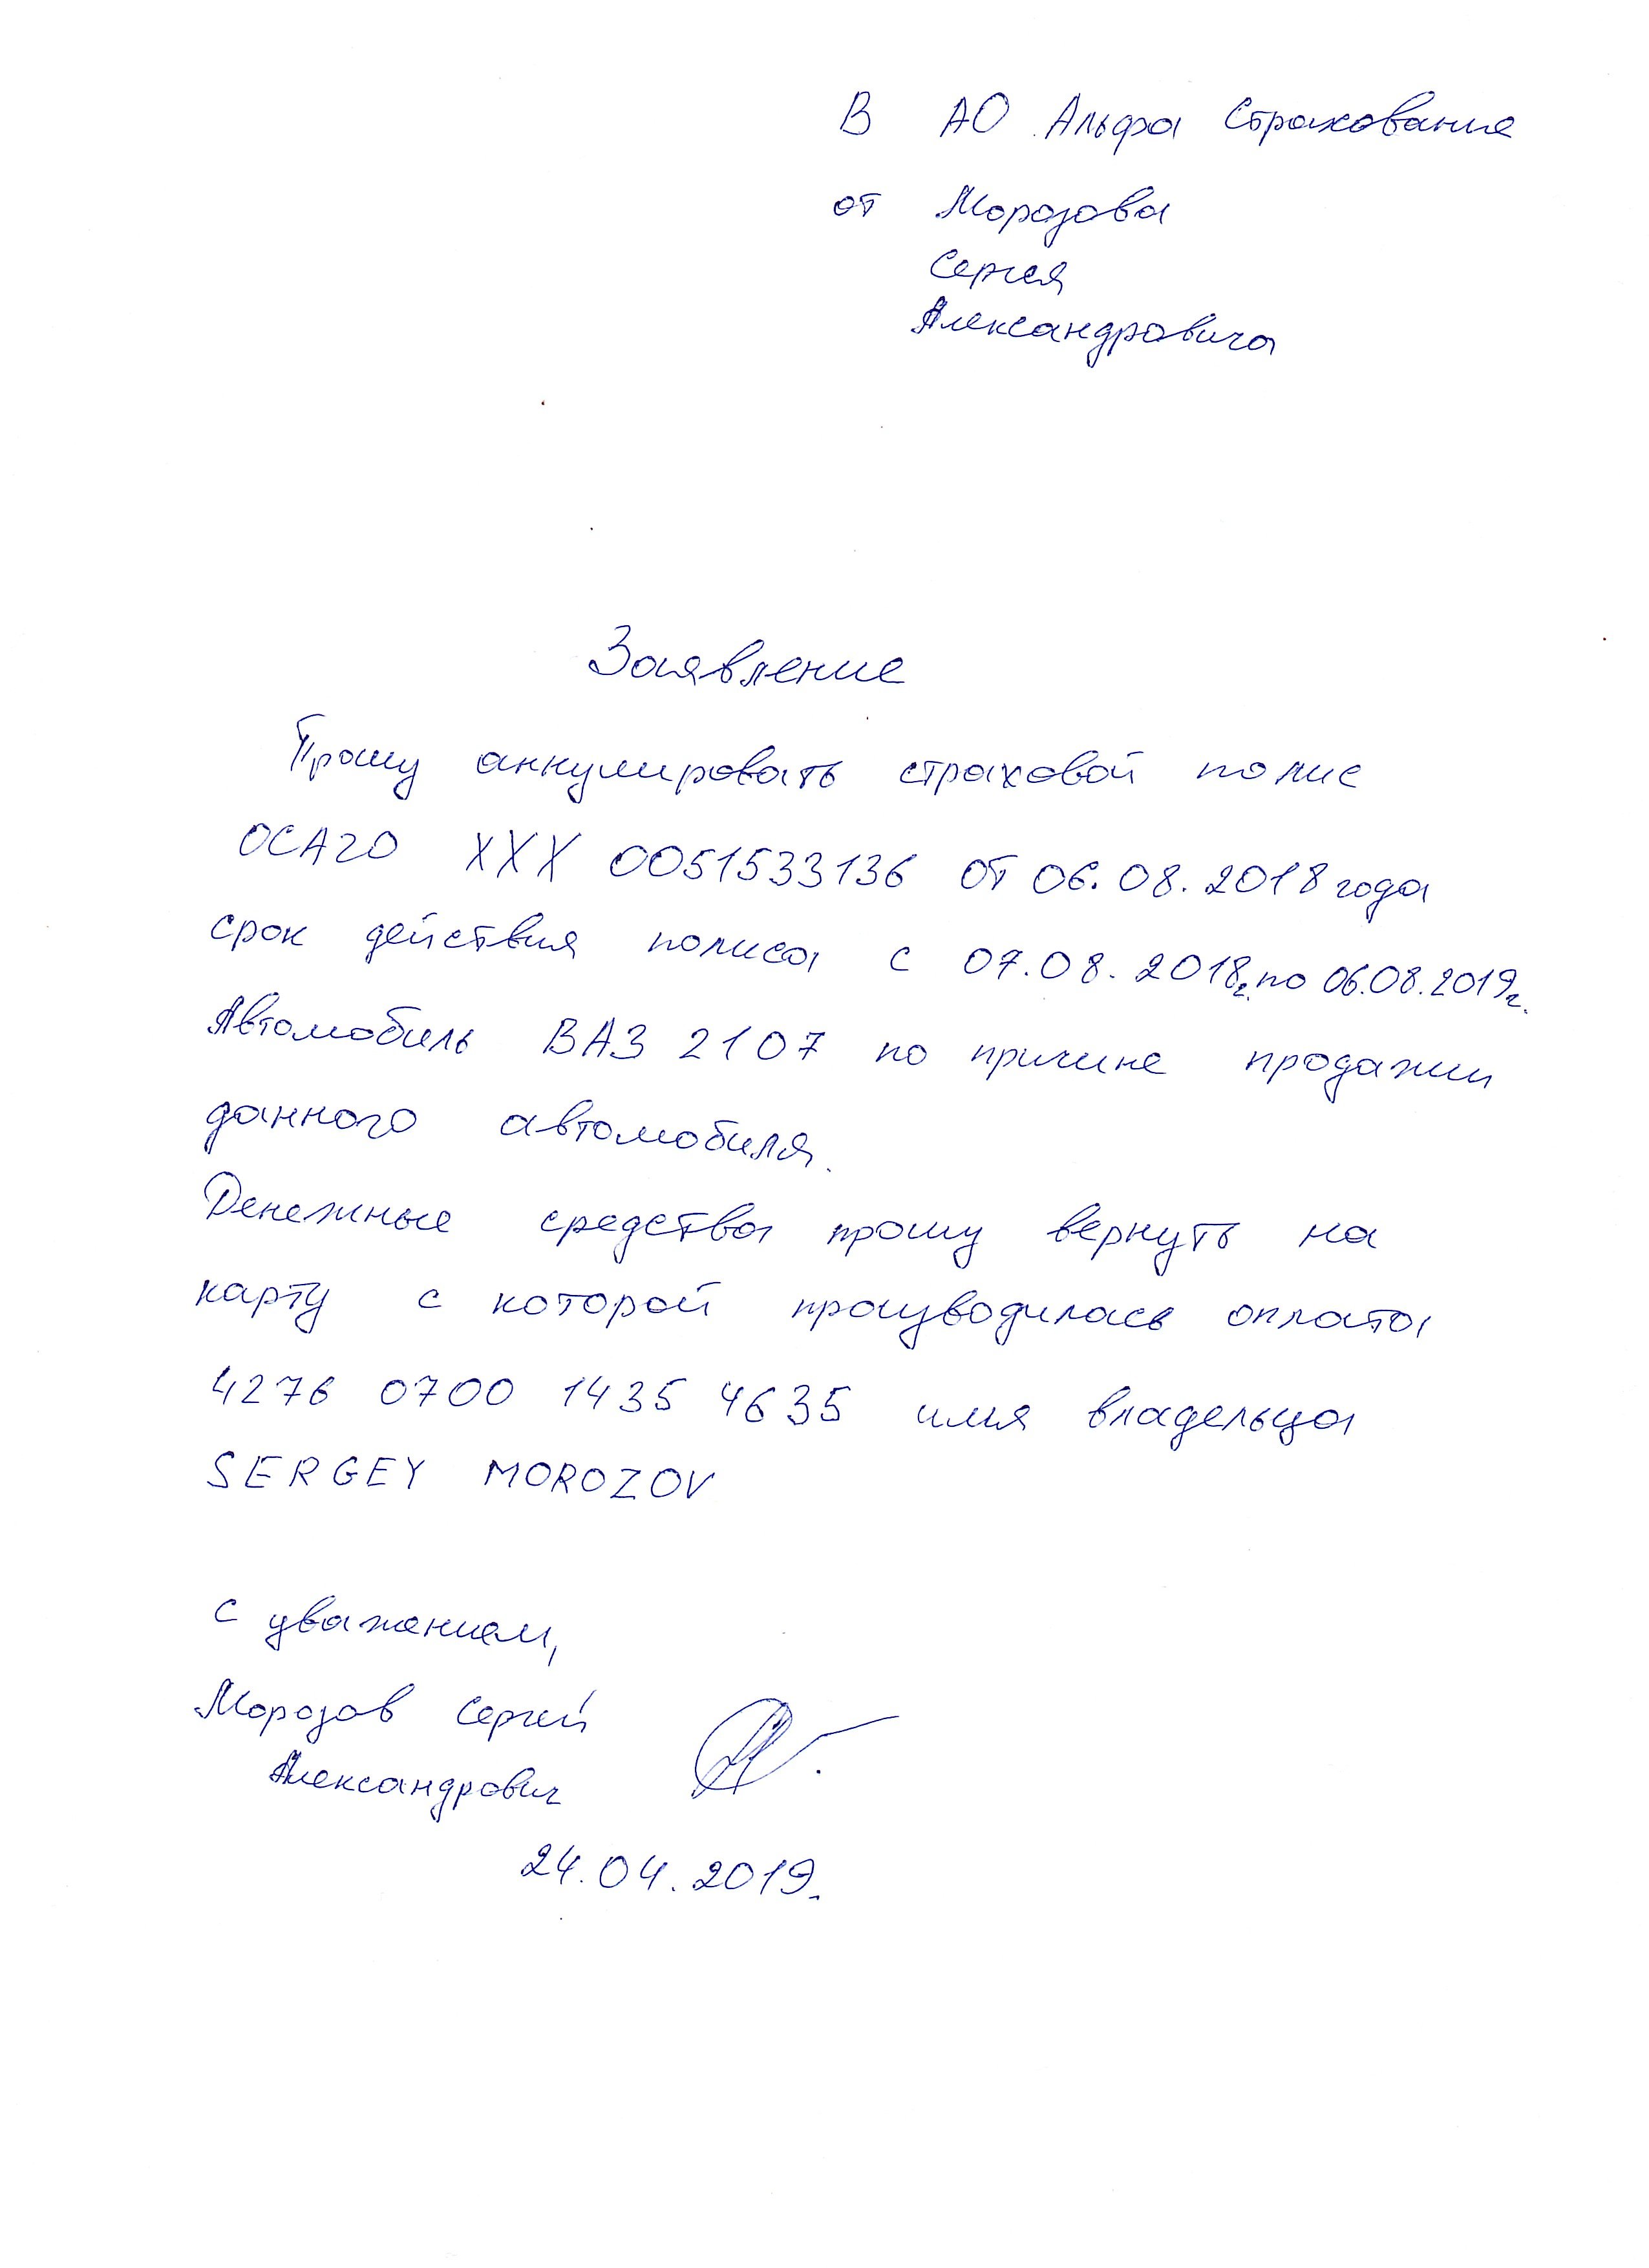 В АО Альфа Страхование
от Морозова
Сергея
Александровича
Заявление
Прошу аннулировать страховой полис
ОСАГО ХХХ 0051533136 от 06.08.2018 года
срок действия полиса с 07.08.2018г. по 06.08.2019г.
Автомобиль ВАЗ 2107 по причине продажи
данного автомобиля.
Денежные средства прошу вернуть на
карту с которой производилась оплата
4276 0700 1435 4635 имя владельца
SERGEY MOROZOV
С уважением,
Морозов Сергей
Александрович
24.04.2019.